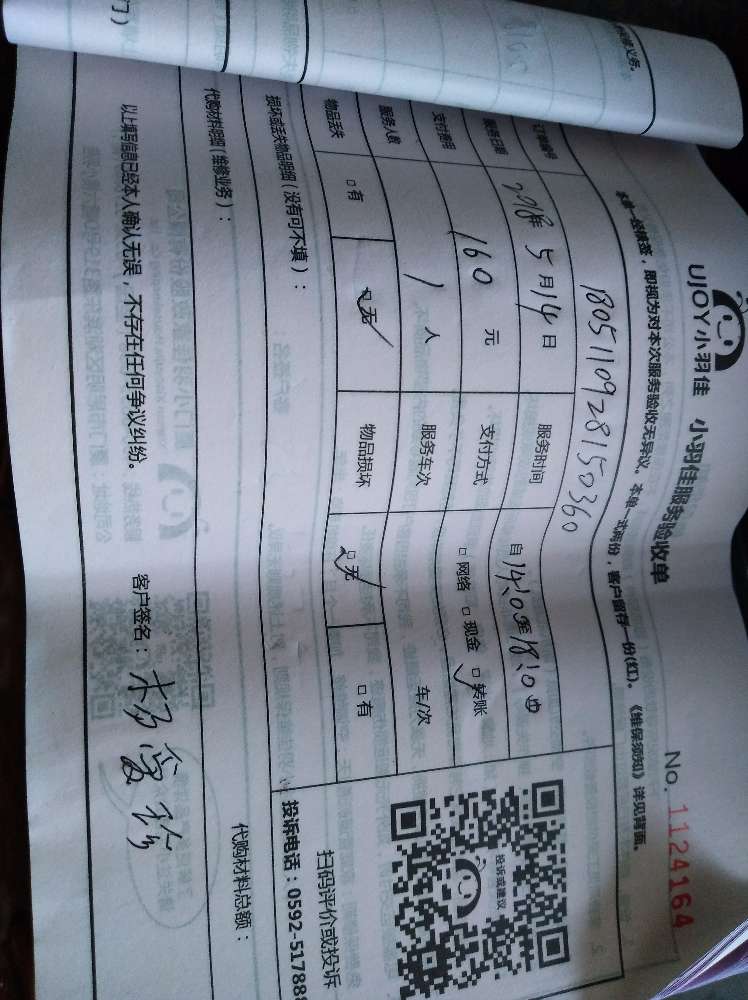 UJOY小羽佳 小羽佳服务验收单
No. 1124164
本单一经续签，即视为对本次服务验收无异议。本单一式两份，客户留存一份(红)。《维保须知》详见背面。
订单编号 18051109281150360
服务日期 2018年 5月14日 服务时间 自14:0至18:0
支付费用 160 元 支付方式 □网络 □现金 □转账
服务人数 1 人 服务车次 车/次
物品丢失 □有 □无 物品损坏 □无 □有
损坏或丢失物品明细（没有可不填）：
代购材料明细（维修业务）： 代购材料总额：
投诉或建议
扫码评价或投诉
投诉电话：0592-517888
以上填写信息已经本人确认无误，不存在任何争议纠纷。 客户签名：杨爱珍